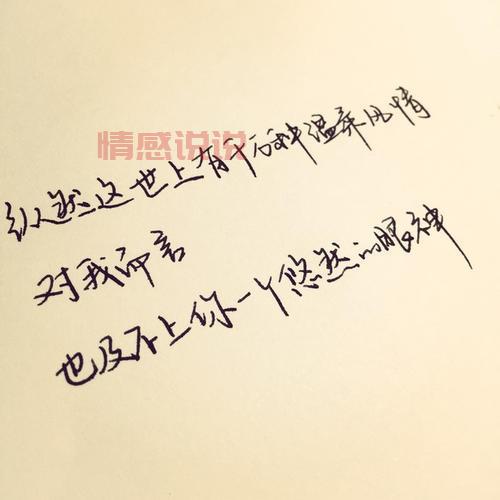 情感说说
纵然这世上有千百种温柔风情
对我而言
也及不上你一个悠然的眼神